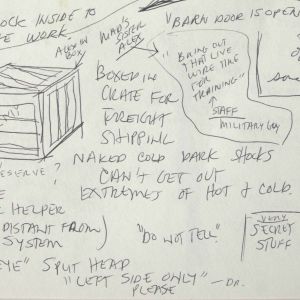 LOCK INSIDE TO
WORK.
ALEX IN
BOX
SISTER
ALEX
"BARN DOOR IS OPEN
"BRING OUT
THAT LIVE
WIRE
FOR
TRAINING"
STAFF
MILITARY GUY
BOXED IN
CRATE FOR
FREIGHT
SHIPPING
NAKED COLD DARK SHOCKS
CAN'T GET OUT
EXTREMES OF HOT & COLD.
ESERVE?
HELPER
DISTANT FROM)
SYSTEM)
"DO NOT TELL"
VERY
SECRET
STUFF
EYE" SPLIT HEAD
"LEFT SIDE ONLY" — DR.
PLEASE